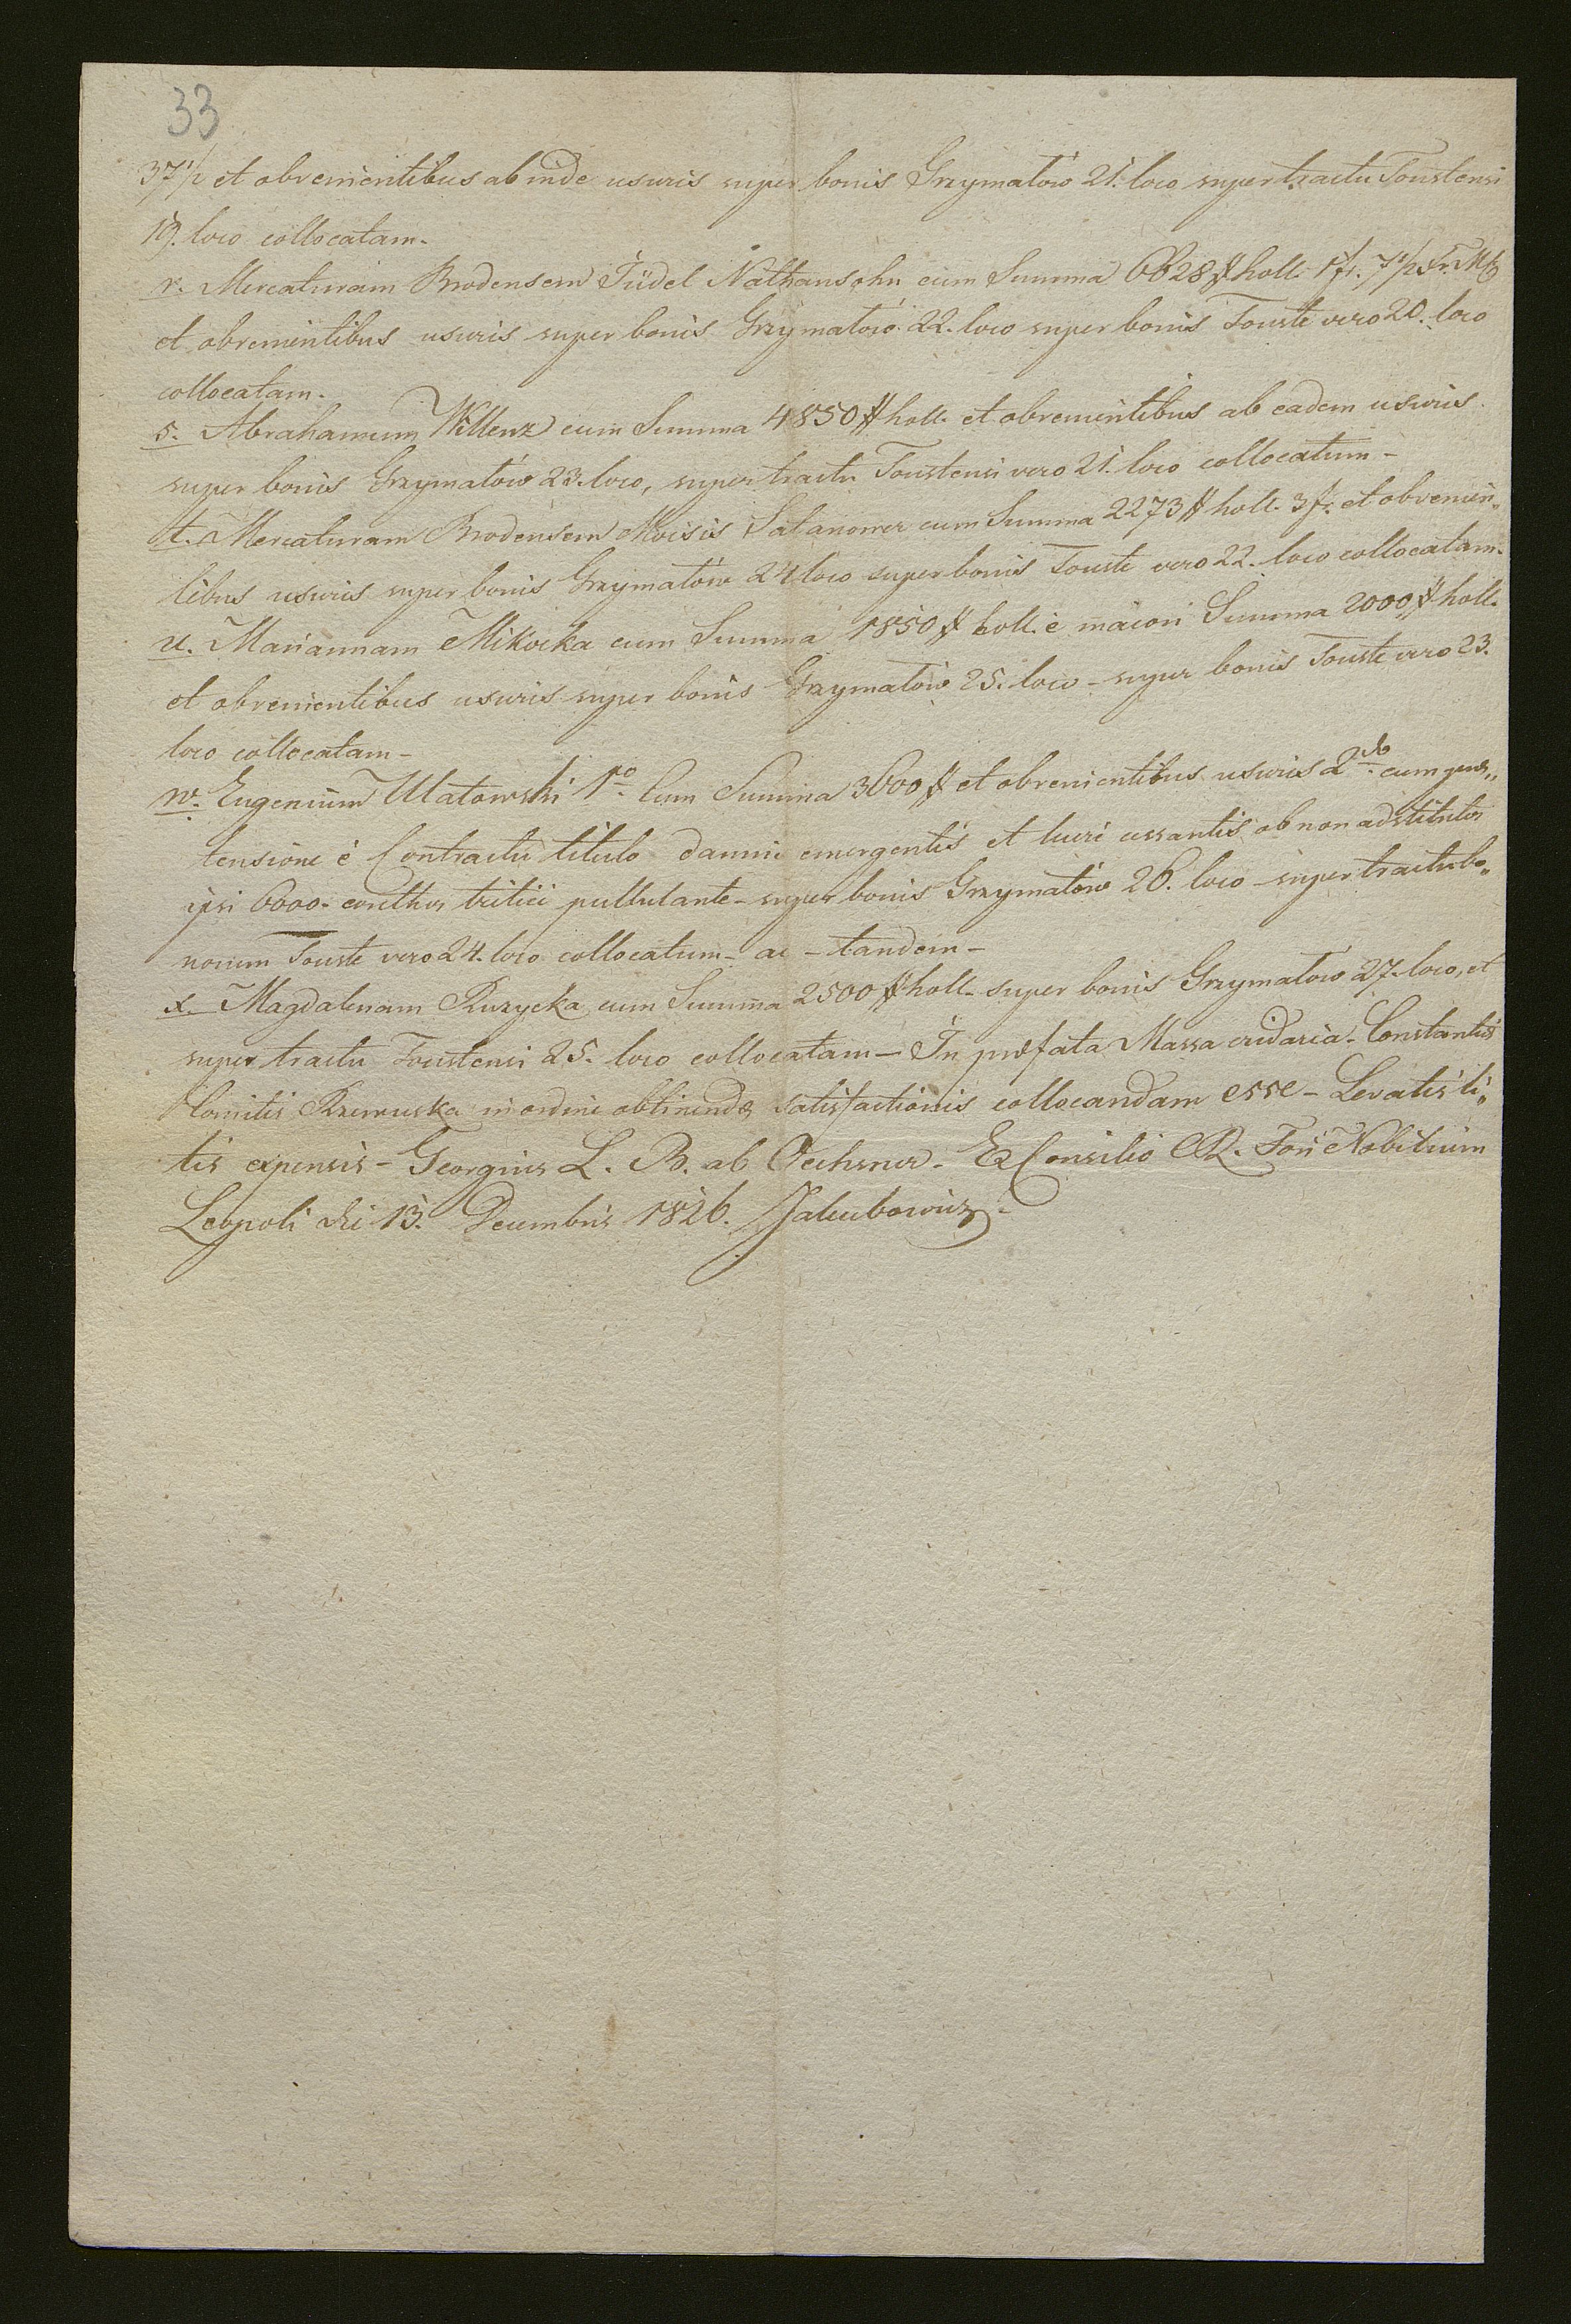 33
37 1/2 et obvenientibus ab inde usuris super bonis Grzymałów 21. loco super tractu Toustensi
19. loco collocatam.
r. Mercaturam Brodensem Jüdel Nathansohn cum Summa 6628 # holl. 1 fr. 7 1/2 xr. Mk
et obvenientibus usuris super bonis Grzymałów 22. loco super bonis Touste vero 20. loco
collocatam.
s. Abrahamum Willenz cum Summa 4850 # holl. et obvenientibus ab eadem usuris
super bonis Grzymałów 23. loco, super tractu Toustensi vero 21. loco collocatum -
t. Mercaturam Brodensem Moisis Satanower cum Summa 2273 # holl. 3 fr. et obvenien„
tibus usuris super bonis Grzymałów 24 loco super bonis Touste vero 22. loco collocatam.
u. Mariannam Mikocka cum Summa 1850 # holl. è maiori Summa 2000 # holl.
et obvenientibus usuris super bonis Grzymałów 25. loco - super bonis Touste vero 23.
loco collocatam -
w. Eugenium Ulatowski 1mo Cum Summa 3600 # et obvenientibus usuris 2do cum prae„
tensione è Contractu titulo damni emergentis et lucri cessantis ob non adstitutos
ipsi 6000. corethos tritici pullulante - super bonis Grzymałów 26. loco - super tractu bo„
norum Touste vero 24. loco collocatum - ac - tandem -
x. Magdalenam Ruzycka cum Summa 2500 # holl. super bonis Grzymałów 27. loco, et
super tractu Toustensi 25. loco collocatam - In præfata Massa cridaria Constantii
Comitis Rzewuski in ordine obtinendæ satisfactionis collocandam esse - Levatis li„
tis expensis - Georgius L. B. ab Oechsner - Ex Consilio C. R. Fori Nobilium
Leopoli die 13. Decembris 1826. Jakubowicz